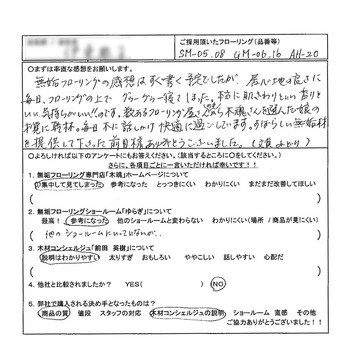 ご採用頂いたフローリング(品番等)
SM-05.08 GM-06.16 AH-20
○まずは率直な感想をお願いします。
無垢フローリングの感想はすぐ書く訳でしたが 居心地の良さに
毎日、フローリングの上で グーグー寝てしまった。 特に肌ざわりといい香りと
いい気持ちいい!!です。数あるフローリング屋さんから木魂さんを選んだ娘の
構に乾杯。毎日木に話しかけ快適に過ごしています。すばらしい無垢材
を提供して下さった前田様ありがとうございました。
○よろしければ以下のアンケートにもお答えください。(該当するところに○をしてください。)
さらに、各項目ごとに一言いただければ幸いです!!
1. 無垢フローリング専門店「木魂」ホームページについて
集中して見てしまった 参考になった とっつきにくい わかりにくい まだまだ改善してほしい
( )
2. 無垢フローリングショールーム「ゆらぎ」について
最高! 参考になった 他のショールームと変わらない わかりにくい(場所 / 商品が見にくい)
( 他のショールームにいっていないが、 )
3. 木材コンシェルジュ「前田 英樹」について
説明はわかりやすい 太りすぎ おもしろい ややこしい 話しやすい 心配だ
( )
4. 他社と比較されましたか? YES( ) NO
5. 弊社で購入される決め手となったものは?
商品の質 値段 スタッフの対応 木材コンシェルジュの説明 ショールーム 直感 その他
ご協力ありがとうございました!